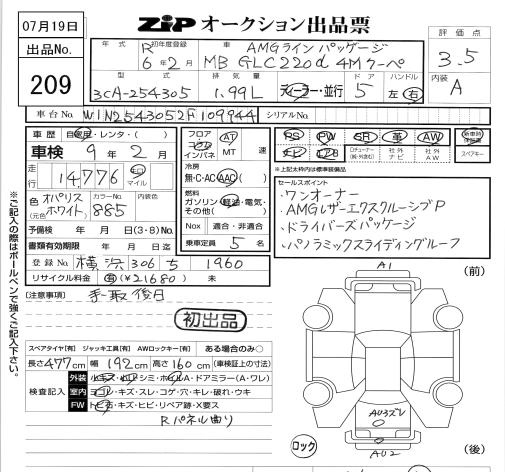 07月19日
ZIP オークション出品票
出品No.
209
年式
R初年度登録
6年2月
車名
AMGラインパッケージ
MB GLC220d 4Mクーペ
評価点
3.5
型式
3CA-254305
排気量
1.99L
ディーラー・並行
ドア
5
ハンドル
左 右
内装
A
車台No. W1N2543052F109944
シリアルNo.
車歴 自家用・レンタ・( )
車検 9年2月
走行 14,776 km マイル
色 オパリスホワイト
(元色)
カラーNo. 885
内装色
予備検 年 月 日(3・8)No.
書類有効期限 年 月 日迄
登録No. 横浜 306 ち 1960
リサイクル料金 有(¥21680) 未
フロア コラム インパネ
AT MT 速
冷房
無・C・AC AAC
燃料
ガソリン 軽油・電気・その他( )
Nox 適合・非適合
乗車定員 5 名
PS PW SR 革 AW
ナビ
社外ナビ
社外AW
新車時保証書
スペアキー
*上記太枠内は標準装備品
セールスポイント
・ワンオーナー
・AMGレザーエクスクルーシブP
・ドライバーズパッケージ
・パノラミックスライディングルーフ
[注意事項] 手取後日
初出品
A1
(前)
※ご記入の際はボールペンで強くご記入下さい。
スペアタイヤ[有] ジャッキ工具[有] AWロックキー[有] ある場合のみ○
長さ477cm 幅192cm 高さ160cm (車検証上の寸法)
検査記入
外装 小キズ・凹・シミ・ホイルA・ドアミラー(A・ワレ)
室内 ヨゴレ・キズ・スレ・コゲ・穴・キレ・破れ・ウキ
FW トビ石・キズ・ヒビ・リペア跡・X要ス
Rパネル曲り
AU3ズレ
ロック
AU2
(後)